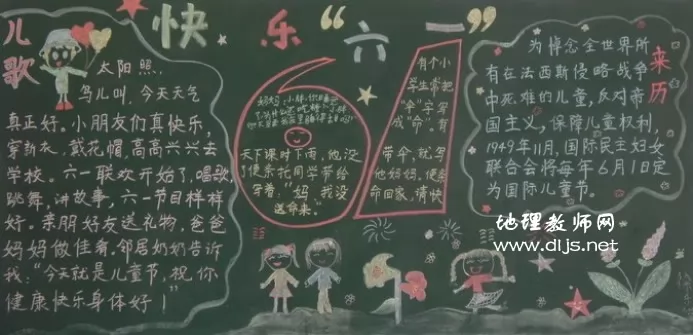 快乐“六一”
儿歌
太阳照，
鸟儿叫，今天天气
真正好。小朋友们真快乐，
穿新衣，戴花帽，高高兴兴去
学校。六一联欢开始了，唱歌，
跳舞，讲故事，六一节目样样
好。亲朋好友送礼物，爸爸
妈妈做佳肴。邻居奶奶告诉
我：“今天就是儿童节，祝你
健康快乐身体好！”
有个小
学生常把
“伞”字写
成“命”。有
天下课时下雨，他没
带伞，就写
了便条托同学带给
他妈妈，便条
写着：“妈，我没
命回家，请快
送命来。”
来历
为悼念全世界所
有在法西斯侵略战争
中死难的儿童，反对帝
国主义，保障儿童权利，
1949年11月，国际民主妇女
联合会将每年6月1日定
为国际儿童节。
地理教师网
www.dljs.net